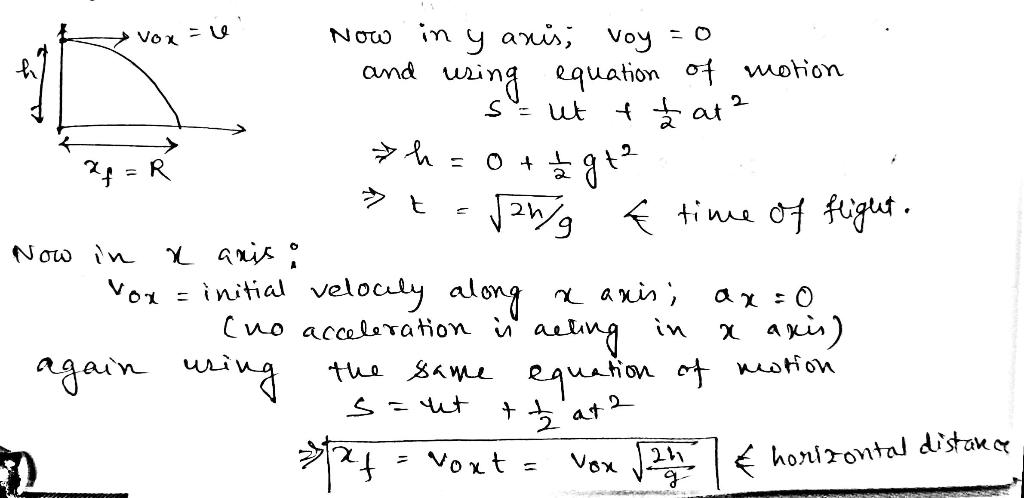 Vox = u
h
xf = R
Now in y axis; Voy = 0
and using equation of motion
S = ut + 1/2 at²
⇒ h = 0 + 1/2 gt²
⇒ t = √2h/g ⇐ time of flight.
Now in x axis:
Vox = initial velocity along x axis; ax = 0
(no acceleration is acting in x axis)
again using the same equation of motion
S = ut + 1/2 at²
⇒ xf = Voxt = Vox √2h/g ⇐ horizontal distance